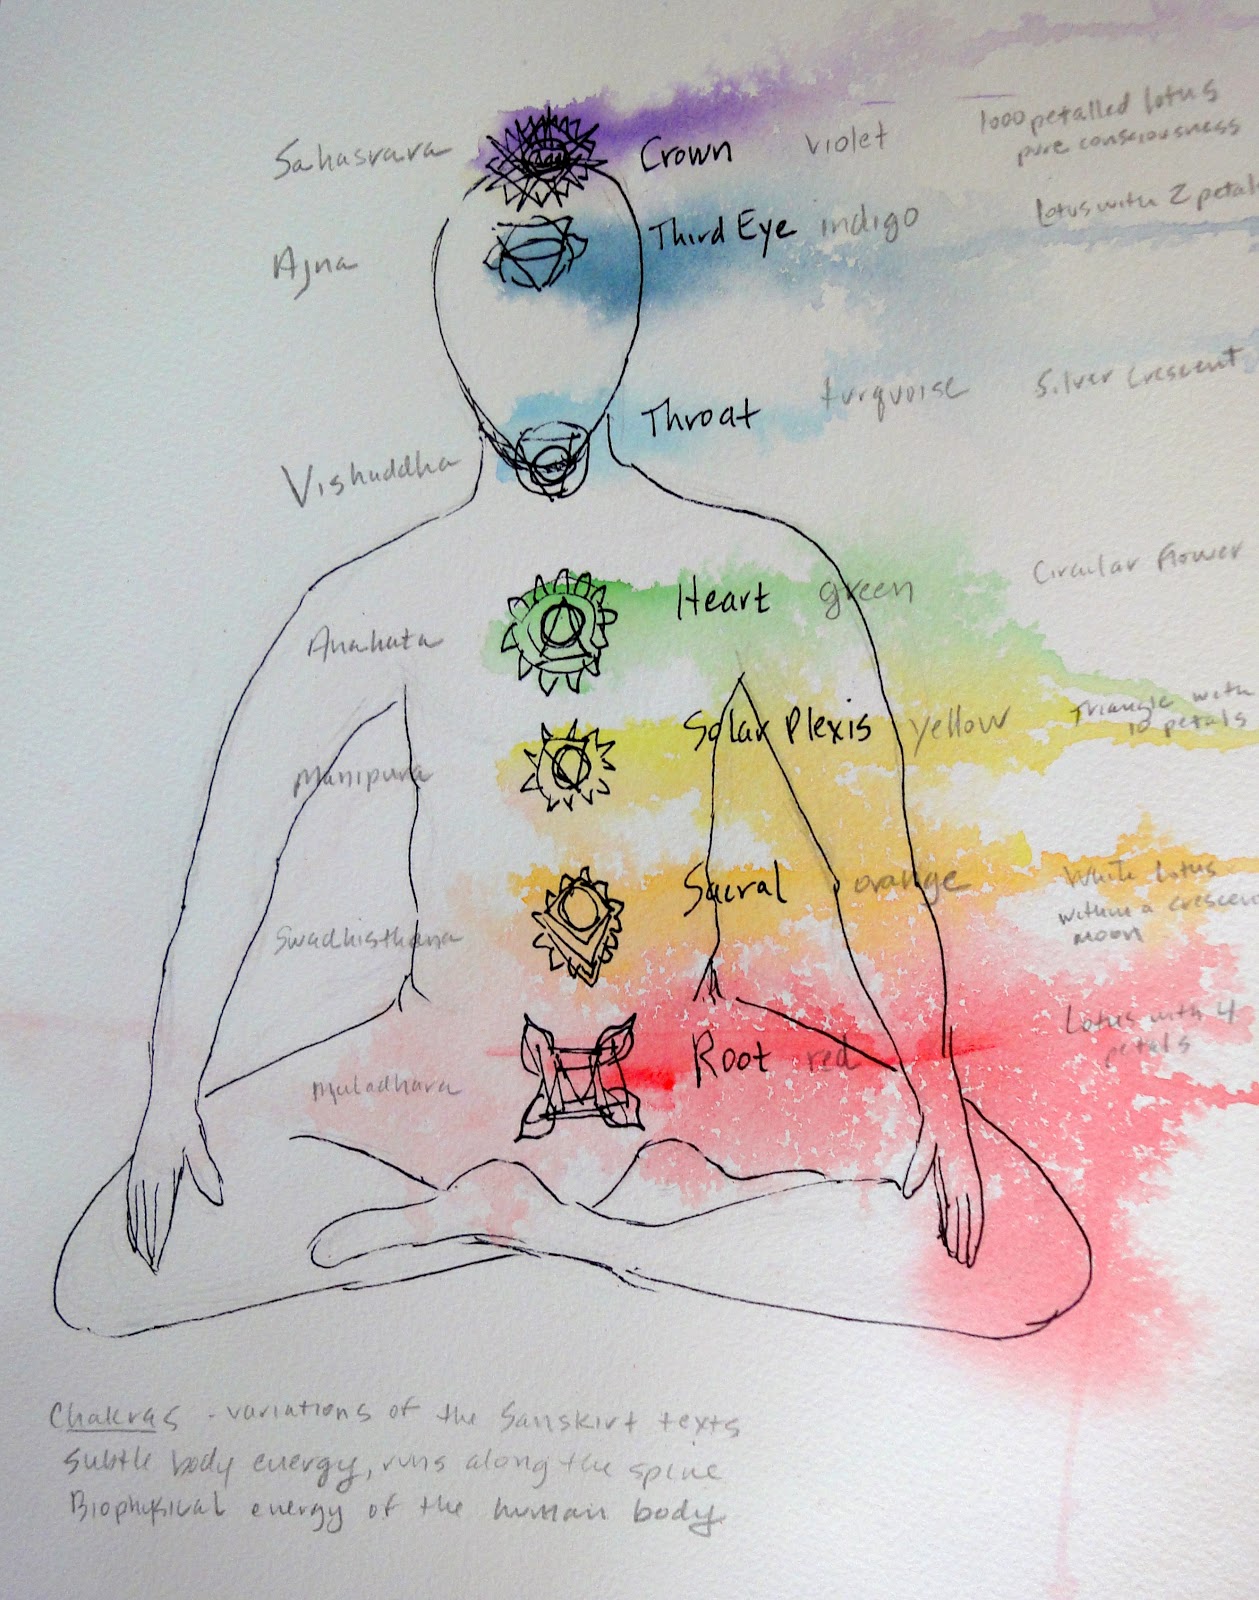 Sahasrara Crown violet 1000 petalled lotus
pure consciousness
Ajna Third Eye indigo Lotus with 2 petals
Vishuddha Throat turquoise Silver Crescent
Anahata Heart green Circular flower
Manipura Solar Plexis yellow Triangle with
10 petals
Swadhisthana Sacral orange White lotus
within a crescent
moon
Muladhara Root red Lotus with 4
petals
Chakras - variations of the Sanskirt texts
subtle body energy, runs along the spine
Biophysical energy of the human body